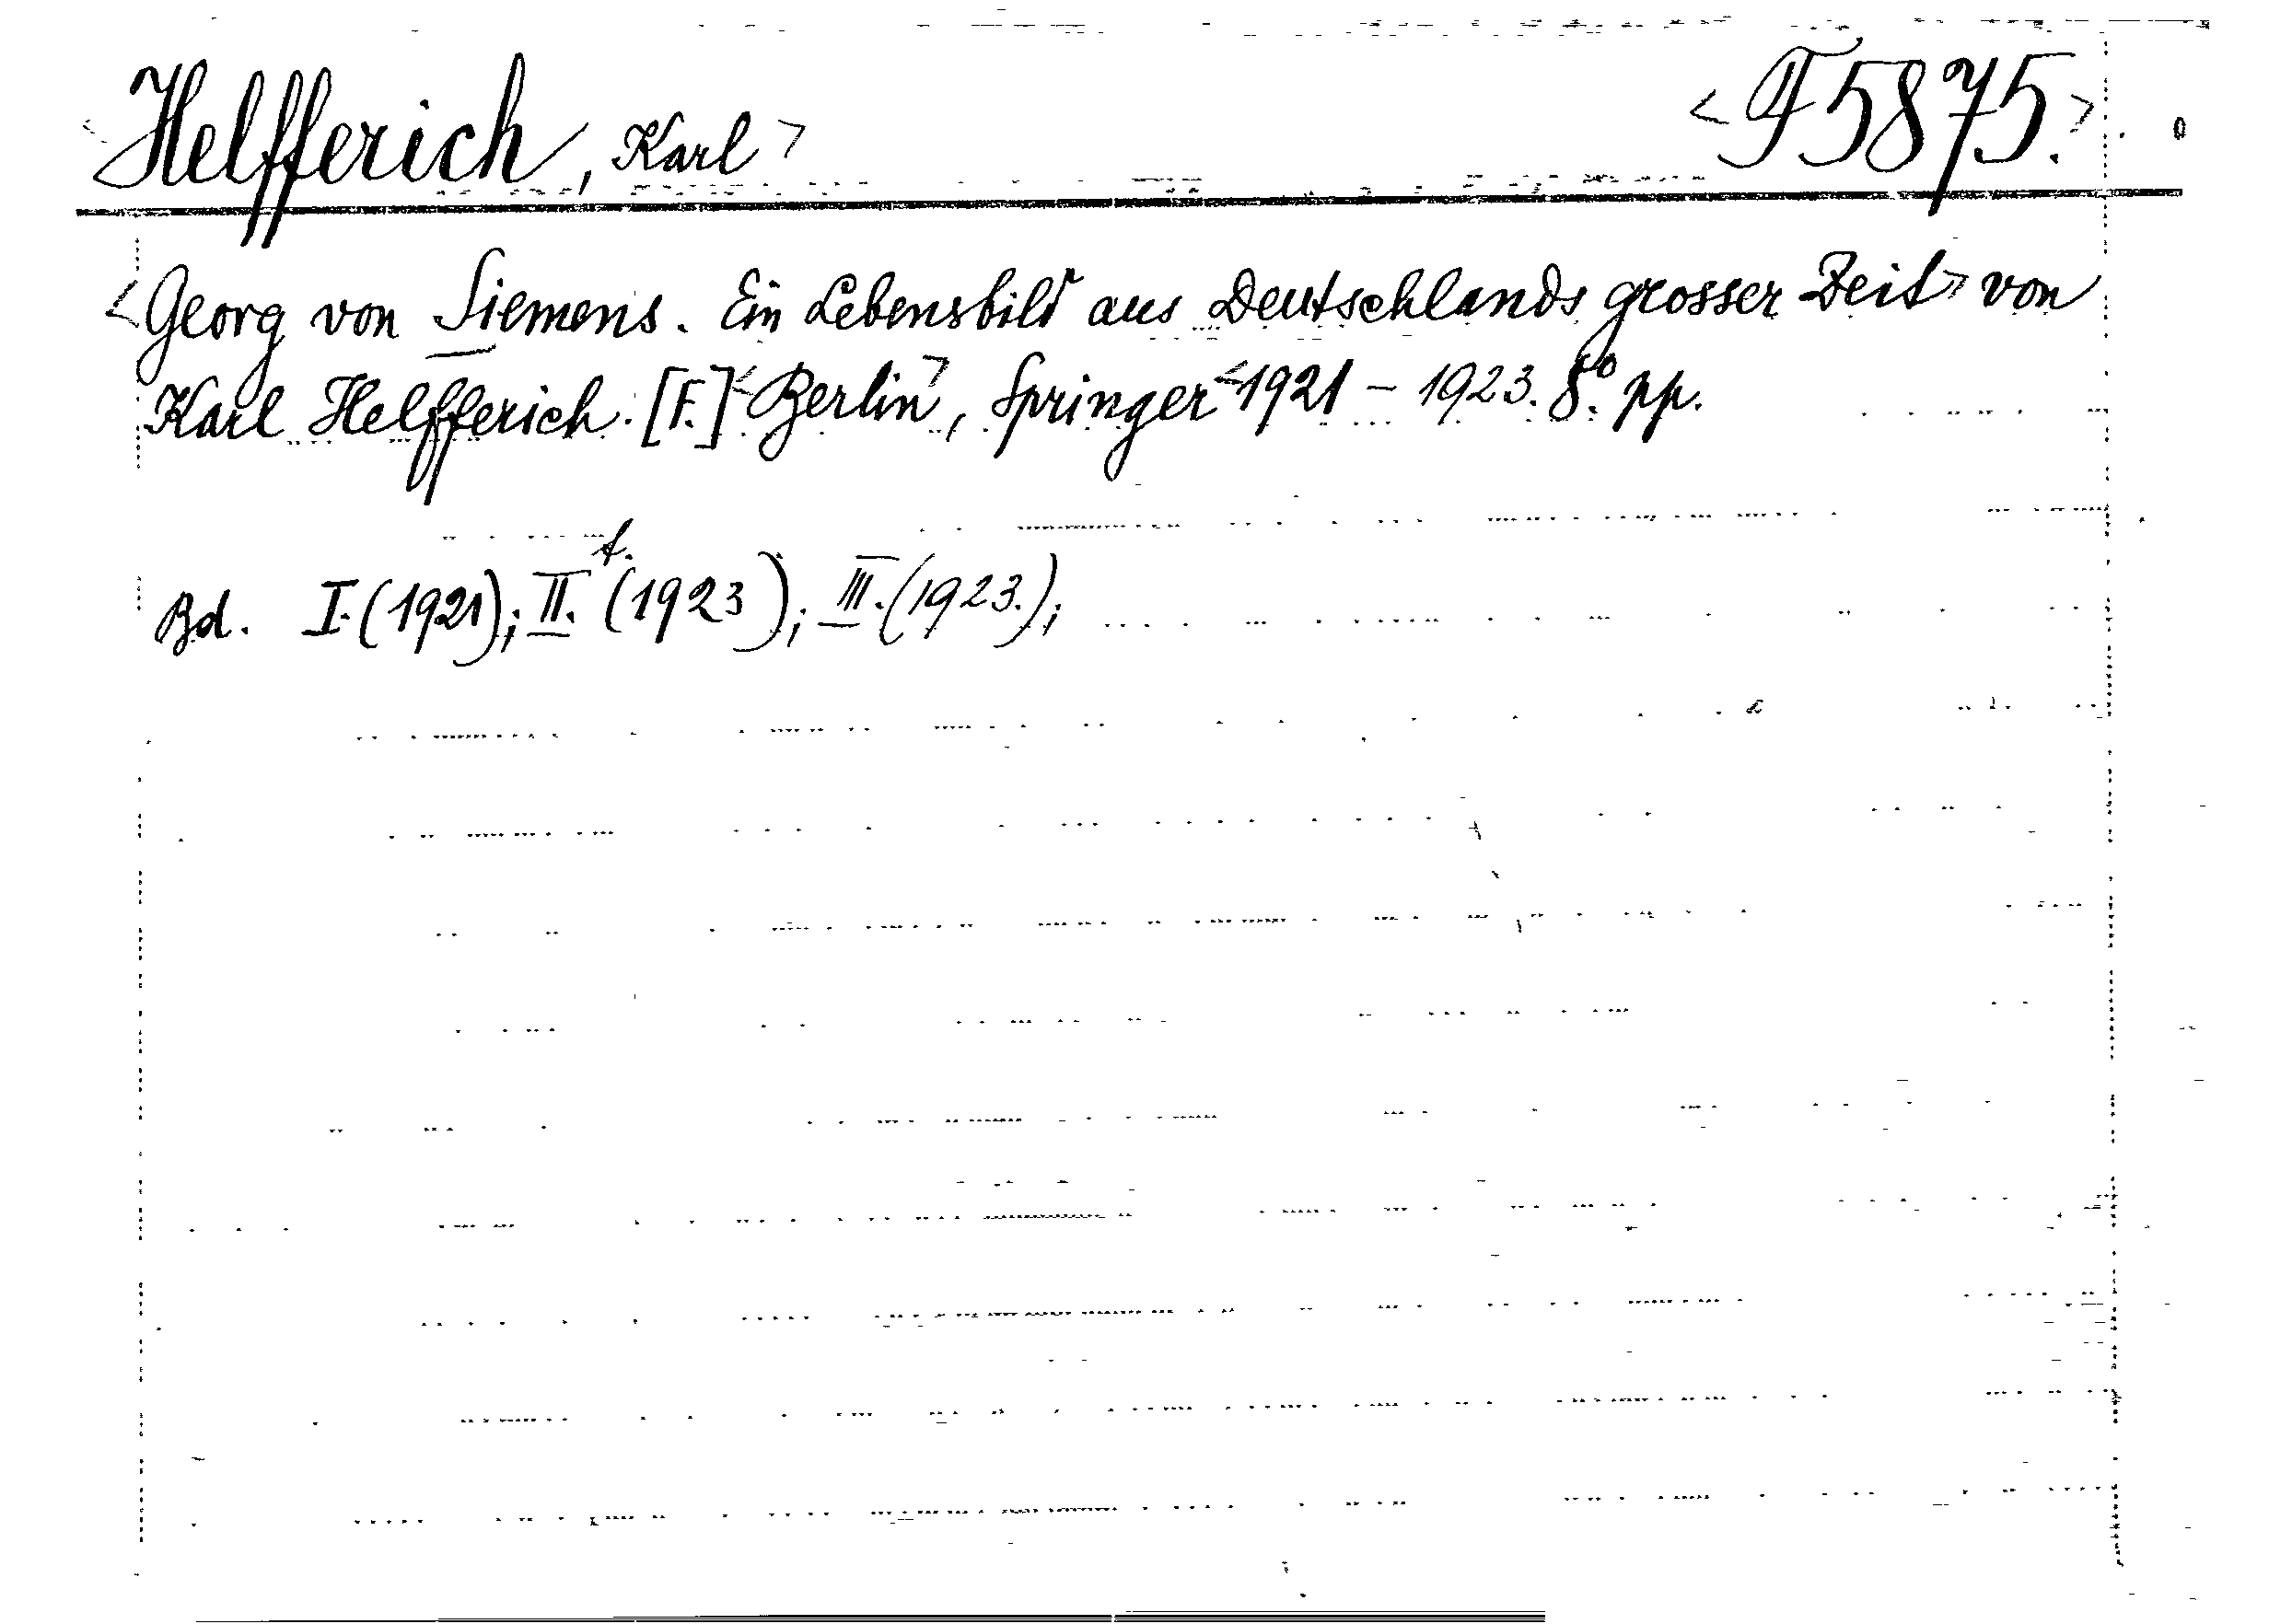 <Helfferich, Karl> <F5875.>
<Georg von Siemens. Ein Lebensbild aus Deutschlands grosser Zeit> von
Karl Helfferich. [F.] <Berlin>, Springer <1921 - 1923. 8º. pp.
t.
Bd. I. (1921); II. (1923); III. (1923.);